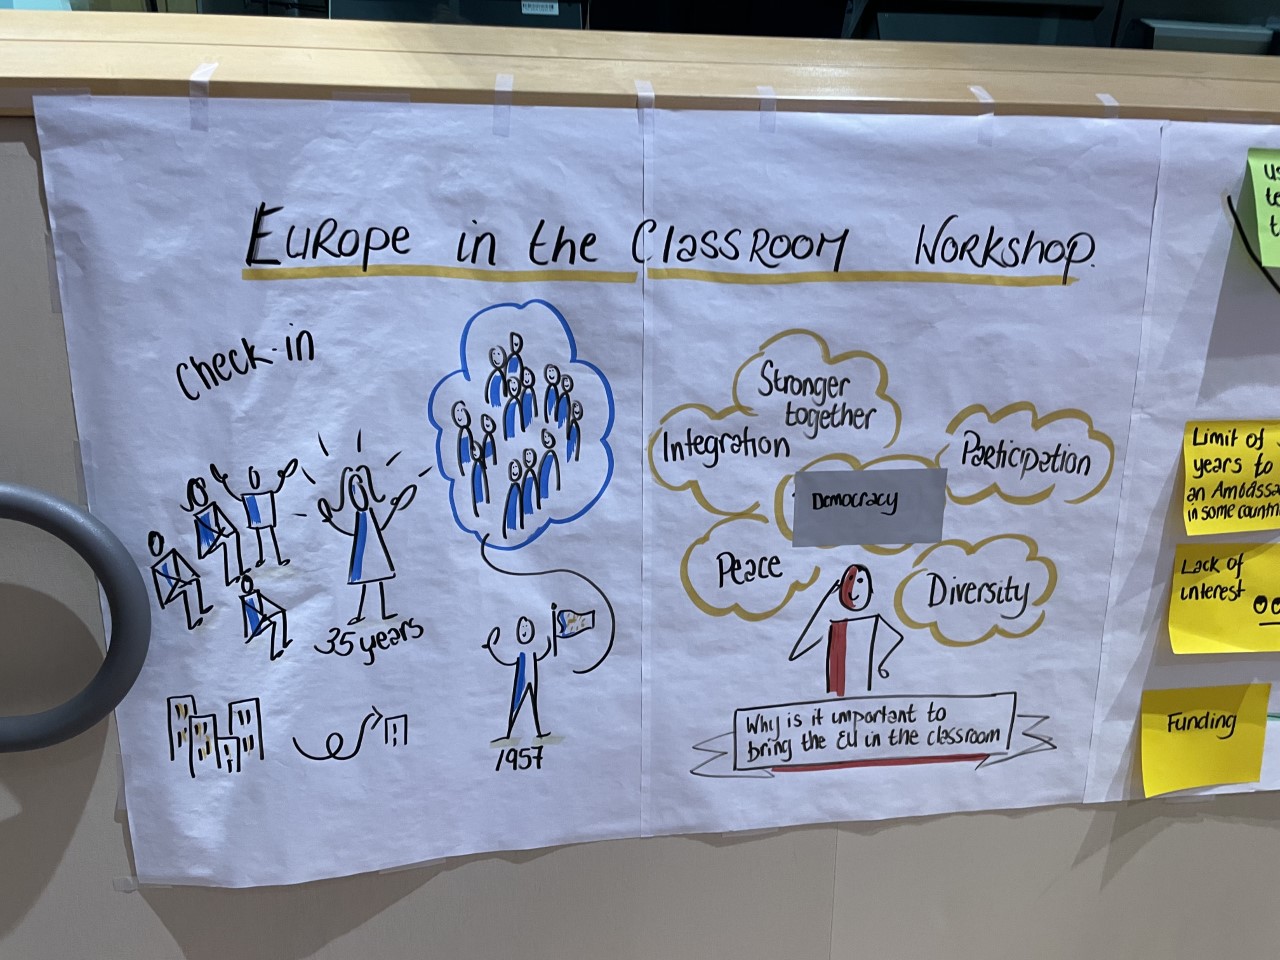 Europe in the Classroom Workshop.
Check-in
35 years
1957
Stronger
together
Integration
Participation
Democracy
Peace
Diversity
Why is it important to
bring the EU in the classroom
Limit of
years to
an Ambassa
in some countri
Lack of
interest
Funding